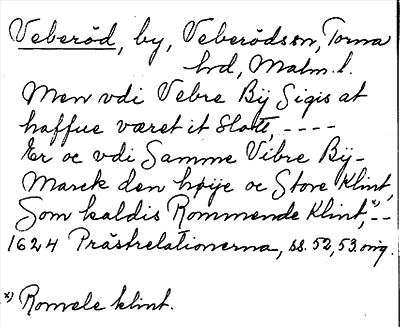 Veberöd, by, Veberöds sn, Torna
hd, Malm. l.
Men vdi Vebre Bÿ Sigis at
haffue været it Slott, ----
Er oc vdi Samme Vibre Bÿ-
Marck den høije oc Store Klint,
Som kaldis Rommende Klint, x) --
1624 Prästrelationerna, ss. 52, 53 orig.
x) Romele klint.